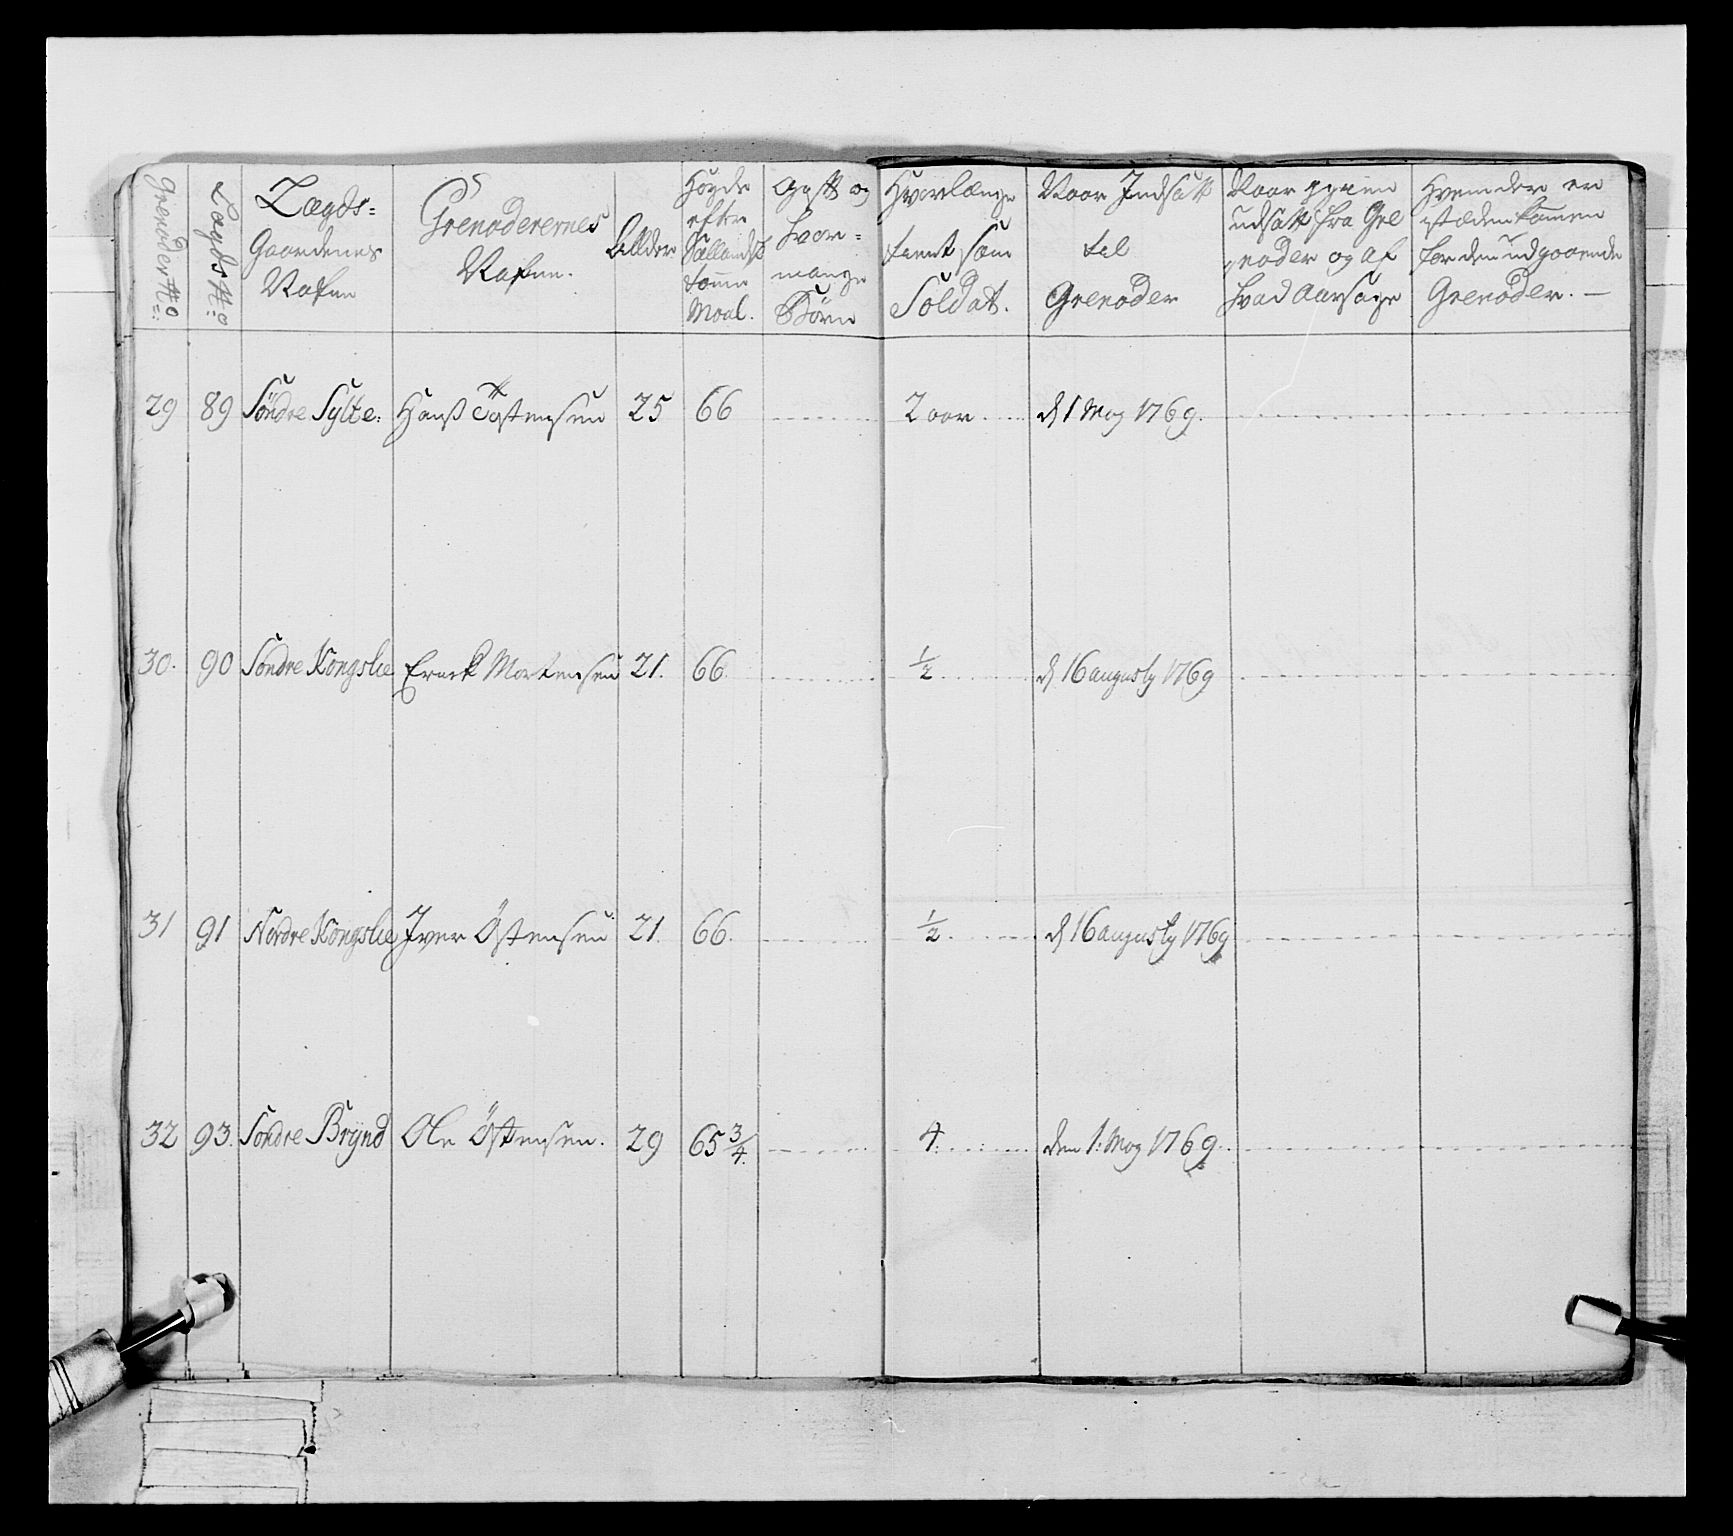 Grenoder No
Lægds No
Lægds-
Gaardenes
Nafne
Grenoderernes
Nafne.
Allder
Høyde
efter
Sællandsk
tomme
Maal.
Gift og
hvor-
mange
Børn
Hvorlænge
tient som
Soldat.
Naar Indsatt
til
Grenoder
Naar igien
udsatt fra Gre
noder og af
hvad Aarsage
Hvem der er
i stæden kommen
for dend udgaaende
Grenoder. —
29 89 Söndre Sylte: Hanß Tostensen 25 66 2 aar. d 1 May 1769.
30. 90 Söndre Kongslie Erick Mortensen 21. 66 1/2 d 16 augusty 1769
31 91 Nordre Kongslie Iver Östensen 21. 66. 1/2. d 16 augusty 1769
32 93. Söndre Brÿnd Ole Östensen. 29 65 3/4. 4. den 1. May 1769.